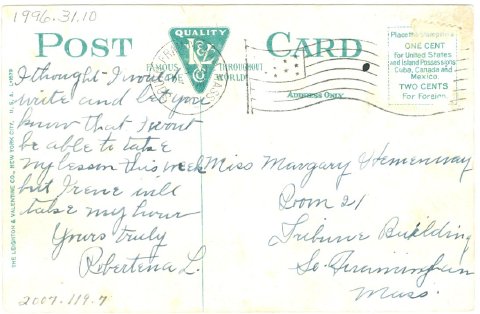 1996.31.10
POST CARD
QUALITY
L & V Co
FAMOUS THROUGHOUT
THE WORLD
ADDRESS ONLY.
Place the Stamp here
ONE CENT
for United States
and Island Possessions
Cuba, Canada and
Mexico
TWO CENTS
For Foreign.
I thought I would
write and let you
know that I won't
be able to take
my lesson this week
but Irene will
take my hour
Yours truly
Robertena L.
Miss Margary Hemenway
Room 21
Tribune Building
So. Framingham
Mass.
THE LEIGHTON & VALENTINE CO., NEW YORK CITY. U. S. A.
2007.119.7